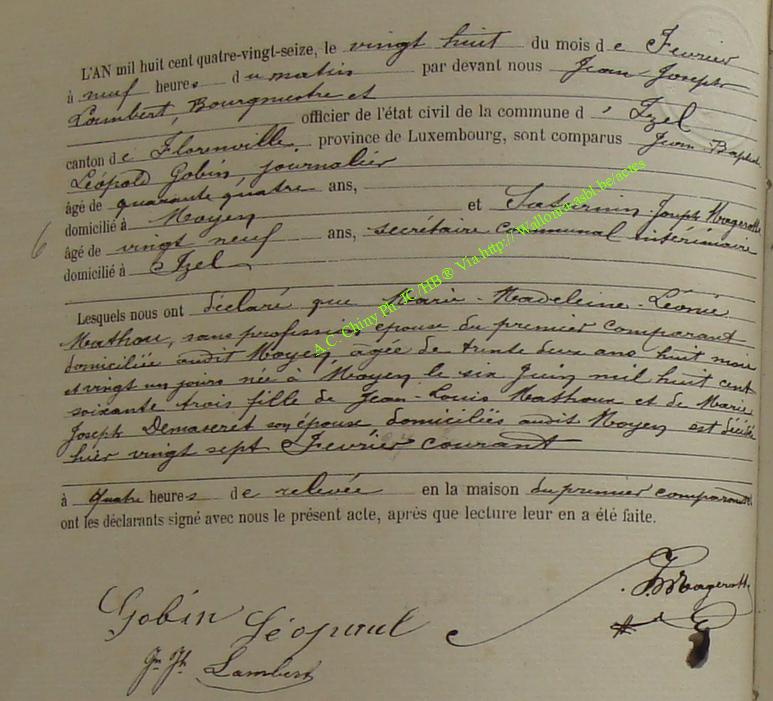 L'AN mil huit cent quatre-vingt-seize, le vingt huit du mois de Fevrier
à neuf heures du matin par devant nous Jean-Joseph
Lambert, Bourgmestre et
officier de l'état civil de la commune d'Izel
canton de Florenville, province de Luxembourg, sont comparus Jean Baptiste
Léopold Gobin, journalier
âgé de quarante quatre ans,
domicilié à Moyen et Saturnin Joseph
6 âgé de vingt neuf ans, secrétaire communal intérimaire
domicilié à Izel
Lesquels nous ont déclaré que Marie-Madeleine-Léonie
Mathou, sans profession, épouse du premier comparant
domiciliée audit Moyen, agée de trente deux ans huit mois
et vingt un jours née à Moyen le six Juin mil huit cent
soixante trois fille de Jean-Louis Mathoux et de Marie
Joseph Demaseret son épouse domiciliés audit Moyen est décédée
hier vingt sept Fevrier courant
à quatre heures de relevée en la maison du premier comparant
ont les déclarants signé avec nous le présent acte, après que lecture leur en a été faite.
Gobin Léopaul
Jn Jh Lambert
A.C. Chiny Ph. JC /HB ® Via http://Wallonia asbl.be/actes